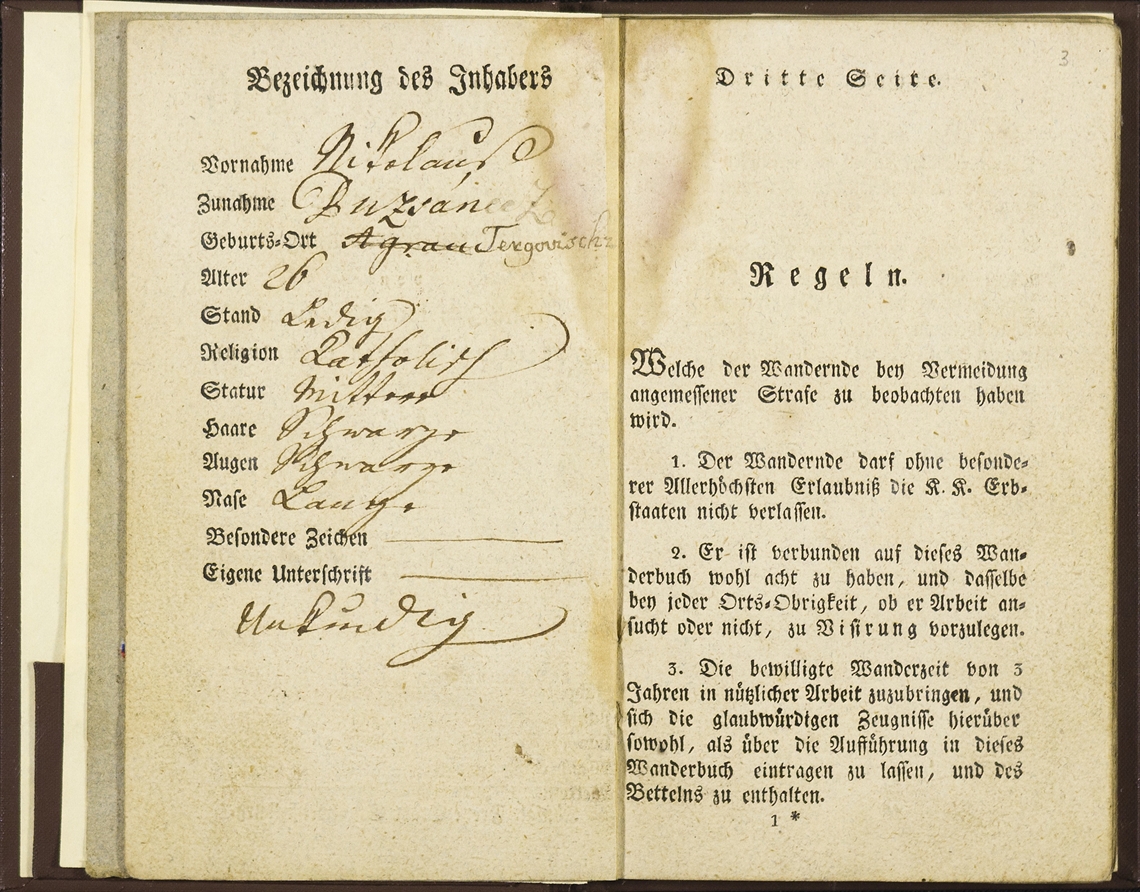 Bezeichnung des Inhabers
Vornahme Nikolaus
Zunahme
Geburts-Ort Agram Tergovischz
Alter 26
Stand Ledig
Religion Katholisch
Statur Mittere
Haare Schwarze
Augen Schwarze
Nase Lange
Besondere Zeichen
Eigene Unterschrift
Unkundig
3
Dritte Seite.
Regeln.
Welche der Wandernde bey Vermeidung
angemessener Strafe zu beobachten haben
wird.
1. Der Wandernde darf ohne besonde-
rer Allerhöchsten Erlaubniß die K. K. Erb-
staaten nicht verlassen.
2. Er ist verbunden auf dieses Wan-
derbuch wohl acht zu haben, und dasselbe
bey jeder Orts-Obrigkeit, ob er Arbeit an-
sucht oder nicht, zu Visirung vorzulegen.
3. Die bewilligte Wanderzeit von 3
Jahren in nützlicher Arbeit zuzubringen, und
sich die glaubwürdigen Zeugnisse hierüber
sowohl, als über die Aufführung in dieses
Wanderbuch eintragen zu lassen, und des
Bettelns zu enthalten.
1 *